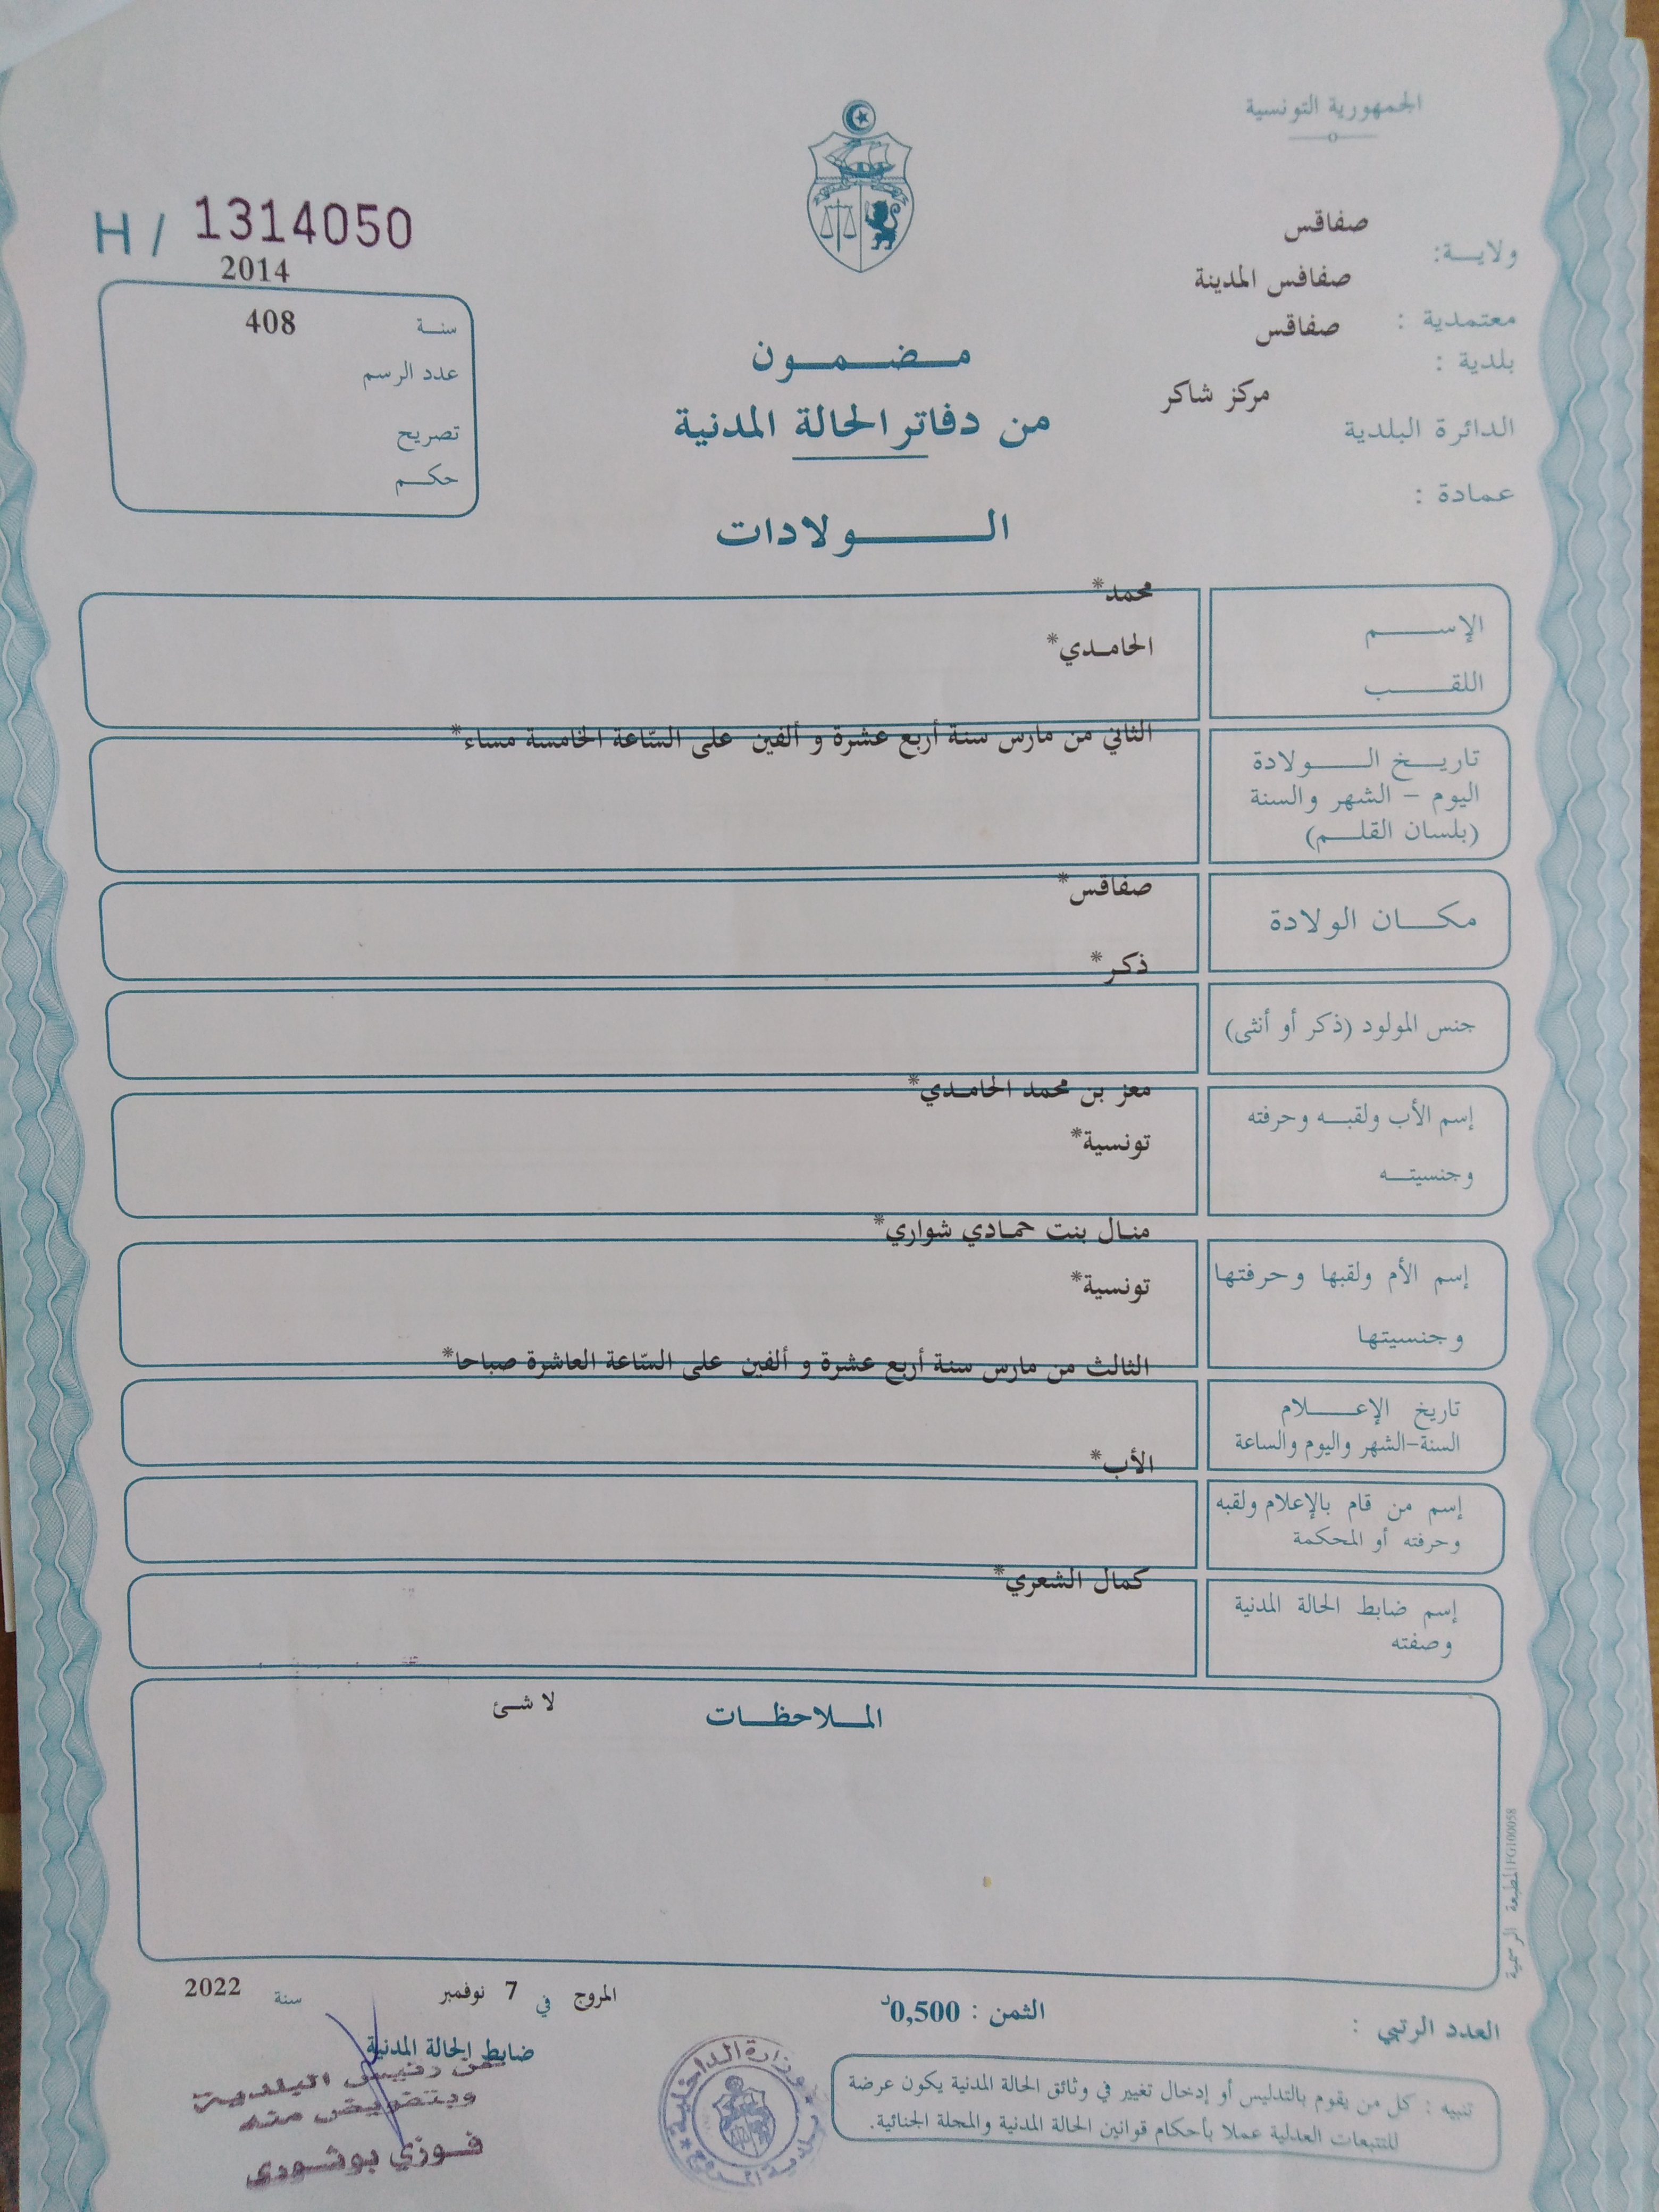 الجمهورية التونسية
H / 1314050
ولايـــة: صفاقس
معتمدية : صفاقس المدينة
بلدية : صفاقس
الدائرة البلدية مركز شاكر
عمادة :
2014
سنـة 408
عدد الرسم
تصريح
حكـم
مـضـمـون
من دفاتر الحالة المدنية
الـــولادات
الإســـم محمد*
اللقـــب الحامـدي*
تاريـخ الـــولادة الثاني من مارس سنة أربع عشرة و ألفين على السّاعة الخامسة مساء*
اليوم – الشهر والسنة
(بلسان القلـم)
مكـــان الولادة صفاقس*
ذكر*
جنس المولود (ذكر أو أنثى)
إسم الأب ولقبـه وحرفته معز بن محمد الحامـدي*
وجنسيتـه تونسية*
إسم الأم ولقبها وحرفتها منـال بنت حمـادي شواري*
وجنسيتها تونسية*
تاريخ الإعـــلام الثالث من مارس سنة أربع عشرة و ألفين على السّاعة العاشرة صباحا*
السنة-الشهر واليوم والساعة
الأب*
إسم من قام بالإعلام ولقبه
وحرفته أو المحكمة
كمال الشعري*
إسم ضابط الحالة المدنية
وصفته
المـلاحظـات لا شئ
المطبعة الرسمية FG100058
العدد الرتبي :
الثمن : 0,500د
المروج في 7 نوفمبر سنة 2022
ضابط الحالة المدنية
عن رئيس البلدية
وبتفويض منه
فوزي بوشودي
وزارة الداخلية
بلدية المروج
تنبيه : كل من يقوم بالتدليس أو إدخال تغيير في وثائق الحالة المدنية يكون عرضة
للتتبعات العدلية عملا بأحكام قوانين الحالة المدنية والمجلة الجنائية.